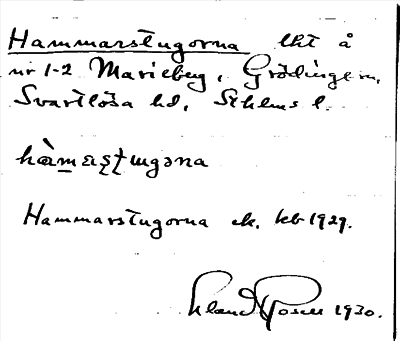 Hammarstugorna lht å
nr 1-2 Marieberg, Grödinge sn,
Svartlösa hd, Sthlms l.
hàmaʂʈɯgəna
Hammarstugorna ek. kb 1929.
1930.